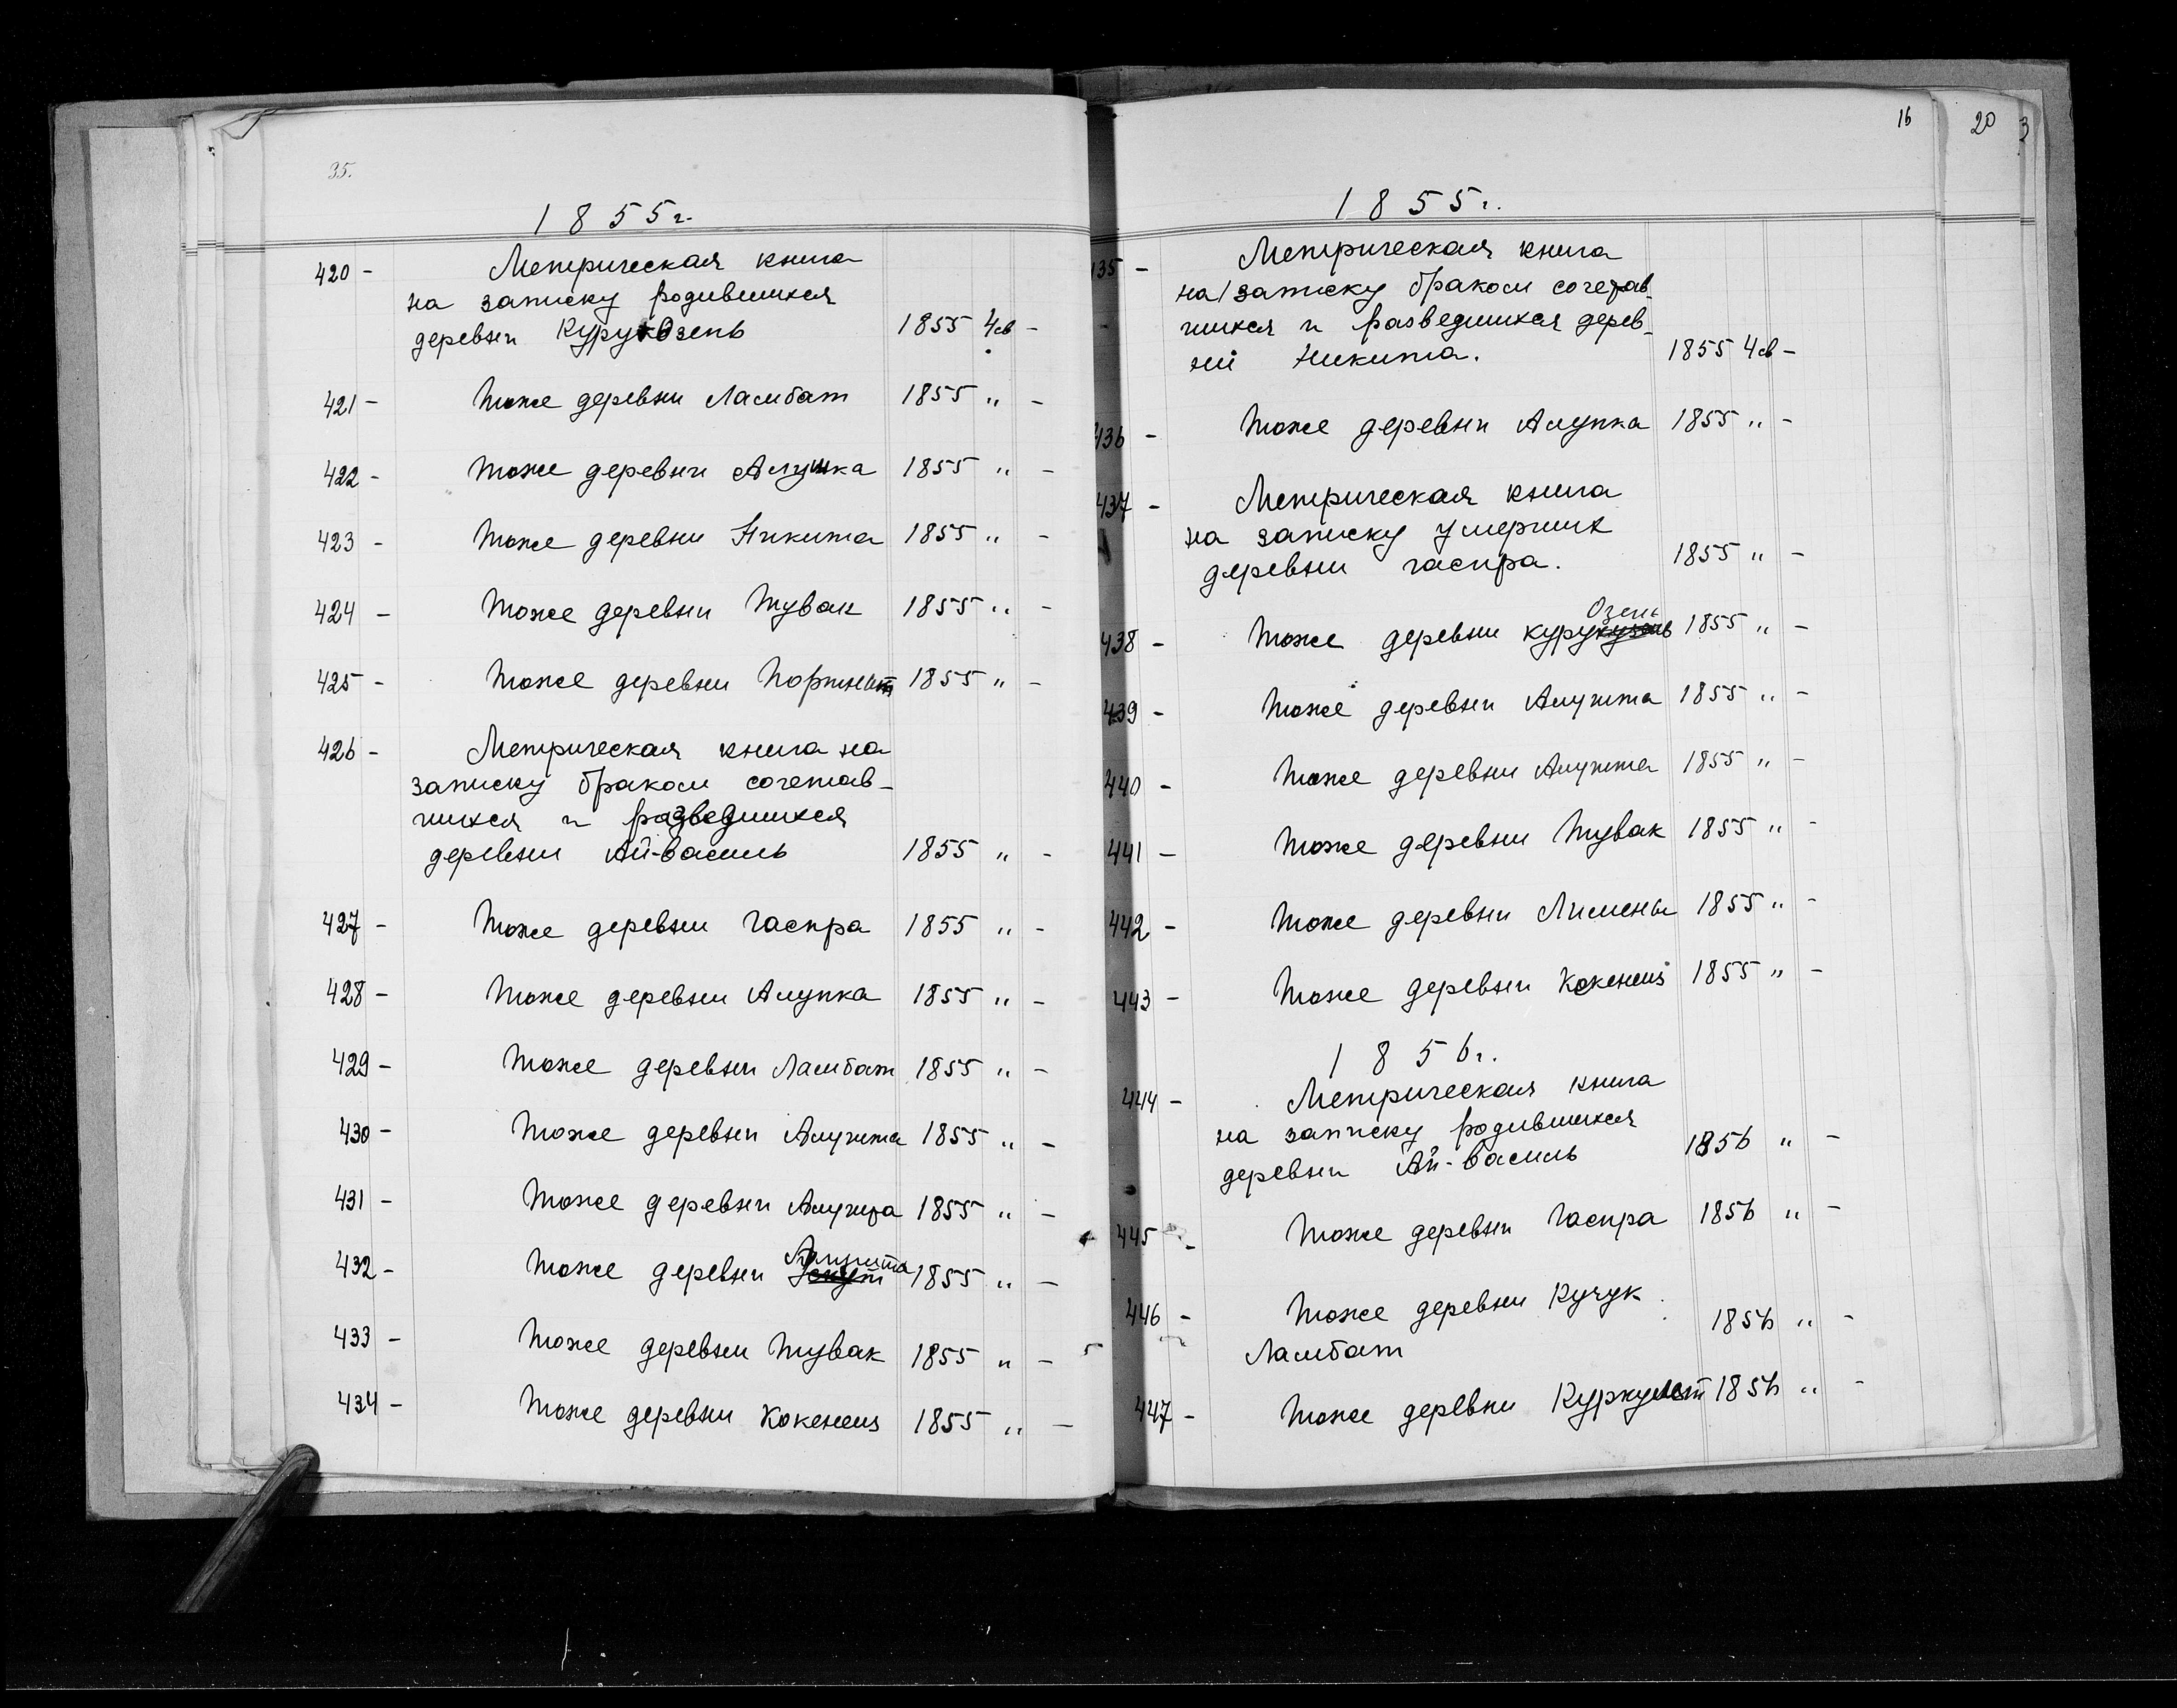 35.
1855г.
420 - Метрическая книга
на записку родившихся
деревни Куру-Озень 1855 4св -
421 - Тоже деревни Ламбат 1855 " -
422 - Тоже деревни Алушка 1855 " -
423 - Тоже деревни Никита 1855 " -
424 - Тоже деревни Тувак 1855 " -
425 - Тоже деревни 1855 " -
426 - Метрическая книга на
записку браком сочетав-
шихся и разведшихся
деревни Ай-Василь 1855 " -
427 - Тоже деревни Гаспра 1855 " -
428 - Тоже деревни Алупка 1855 " -
429 - Тоже деревни Ламбат 1855 " -
430 - Тоже деревни Алушта 1855 " -
431 - Тоже деревни Алушта 1855 " -
432 - Тоже деревни Алушта 1855 " -
433 - Тоже деревни Тувак 1855 " -
434 - Тоже деревни Кокенеиз 1855 " -
16 20 3
1855г.
435 - Метрическая книга
на записку браком сочетав-
шихся и разведшихся дерев-
ни Никита. 1855 4св -
436 - Тоже деревни Алупка 1855 " -
437 - Метрическая книга
на записку умерших
деревни гаспра. 1855 " -
Озень
438 - Тоже деревни куру 1855 " -
439 - Тоже деревни Алушта 1855 " -
440 - Тоже деревни Алушта 1855 " -
441 - Тоже деревни Тувак 1855 " -
442 - Тоже деревни Лимены 1855 " -
443 - Тоже деревни Кокенеиз 1855 " -
1856г.
444 - Метрическая книга
на записку родившихся
деревни Ай-Василь 1856 " -
445 - Тоже деревни Гаспра 1856 " -
446 - Тоже деревни Кучук 1856 " -
Ламбат
447 - Тоже деревни 1856 " -